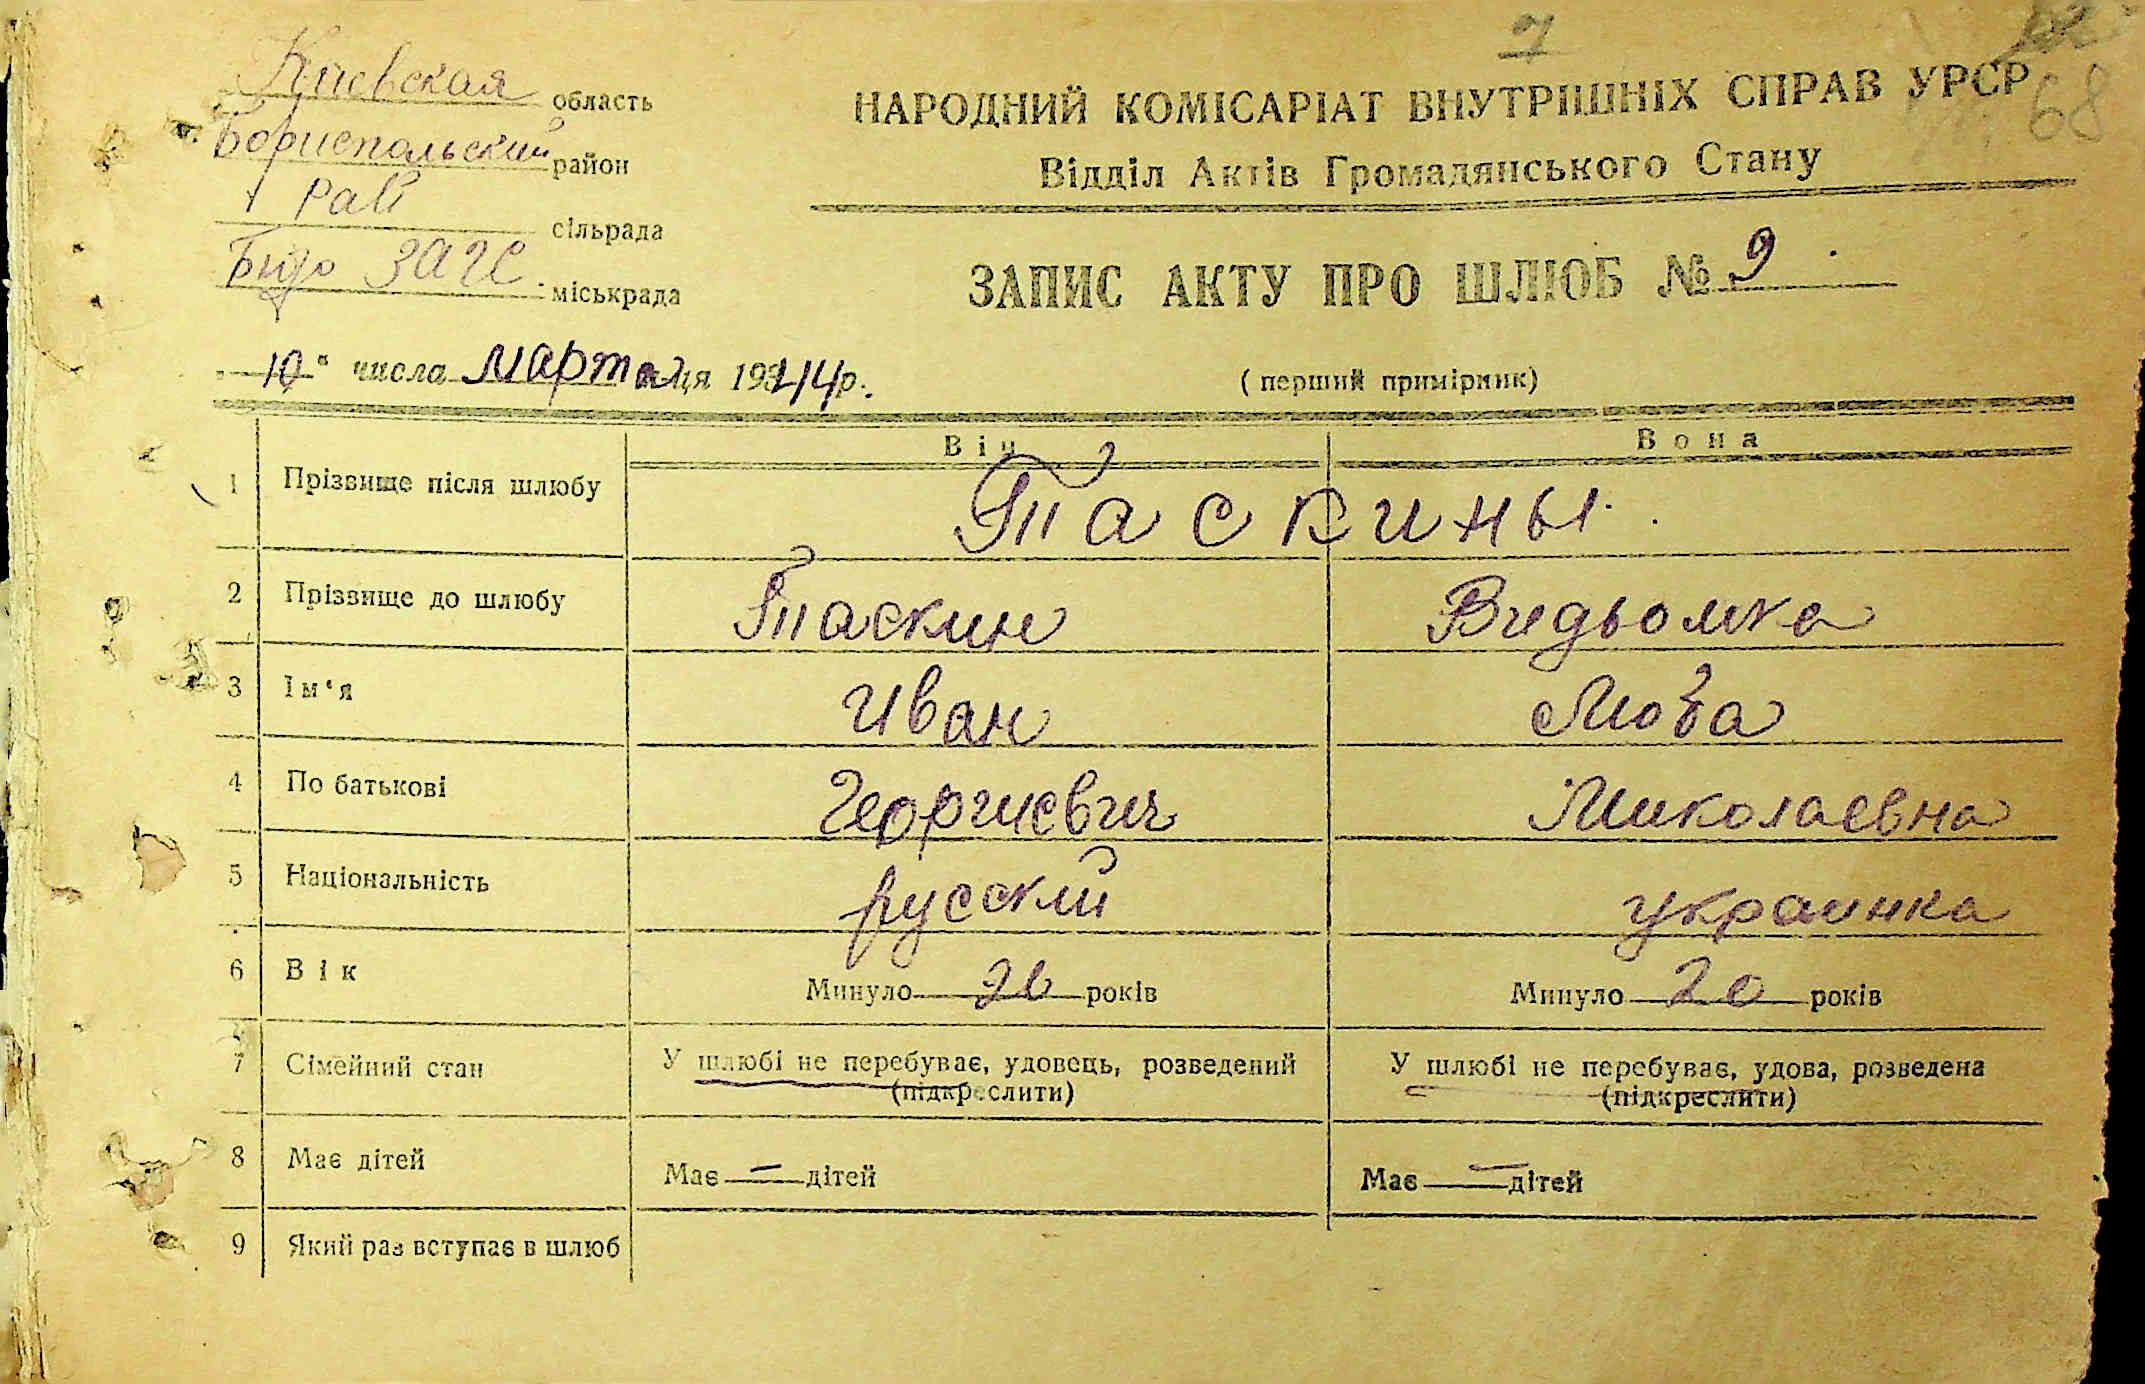 7
68
Киевская область
Бориспольский район
Рай сільрада
Бюро ЗАГС міськрада
НАРОДНИЙ КОМІСАРІАТ ВНУТРІШНІХ СПРАВ УРСР
Відділ Актів Громадянського Стану
ЗАПИС АКТУ ПРО ШЛЮБ № 9
„10“ числа марта ця 1944р.
(перший примірник)
Він Вона
1 Прізвище після шлюбу Таскины
2 Прізвище до шлюбу Таскин Видьомка
3 Ім'я Иван Люба
4 По батькові Георгиевич Миколаевна
5 Національність русский украинка
6 Вік Минуло років Минуло 20 років
7 Сімейний стан У шлюбі не перебуває, удовець, розведений У шлюбі не перебуває, удова, розведена
(підкреслити) (підкреслити)
8 Має дітей Має — дітей Має — дітей
9 Який раз вступає в шлюб